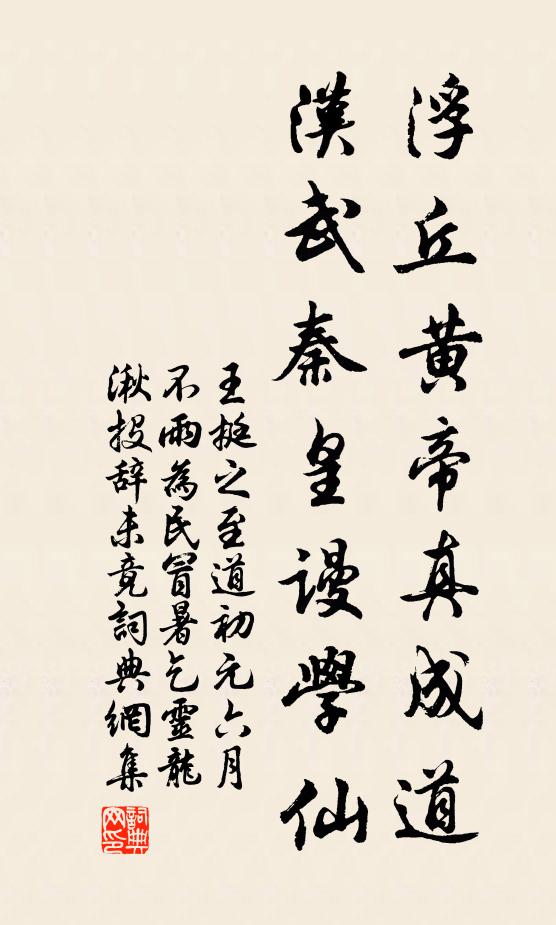 浮丘黃帝真成道
漢武秦皇謾學仙
王挺之至道初元六月
不雨為民冒暑乞靈龍
湫投辞未竟詞典網集
詞典网印